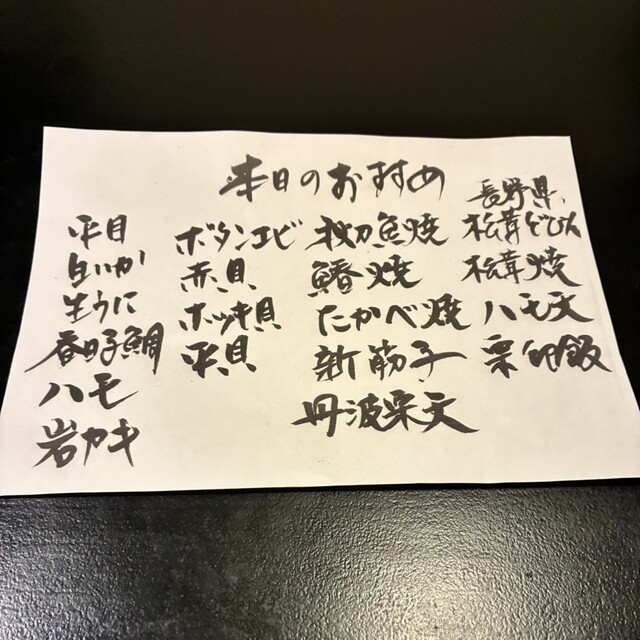 本日のおすすめ
平目
白いか
生うに
春日子鯛
ハモ
岩カキ
ボタンエビ
赤貝
ホッキ貝
平貝
秋刀魚焼
鰆焼
たかべ焼
新筋子
丹波栗天
長野県、
松茸どびん
松茸焼
ハモ天
栗御飯